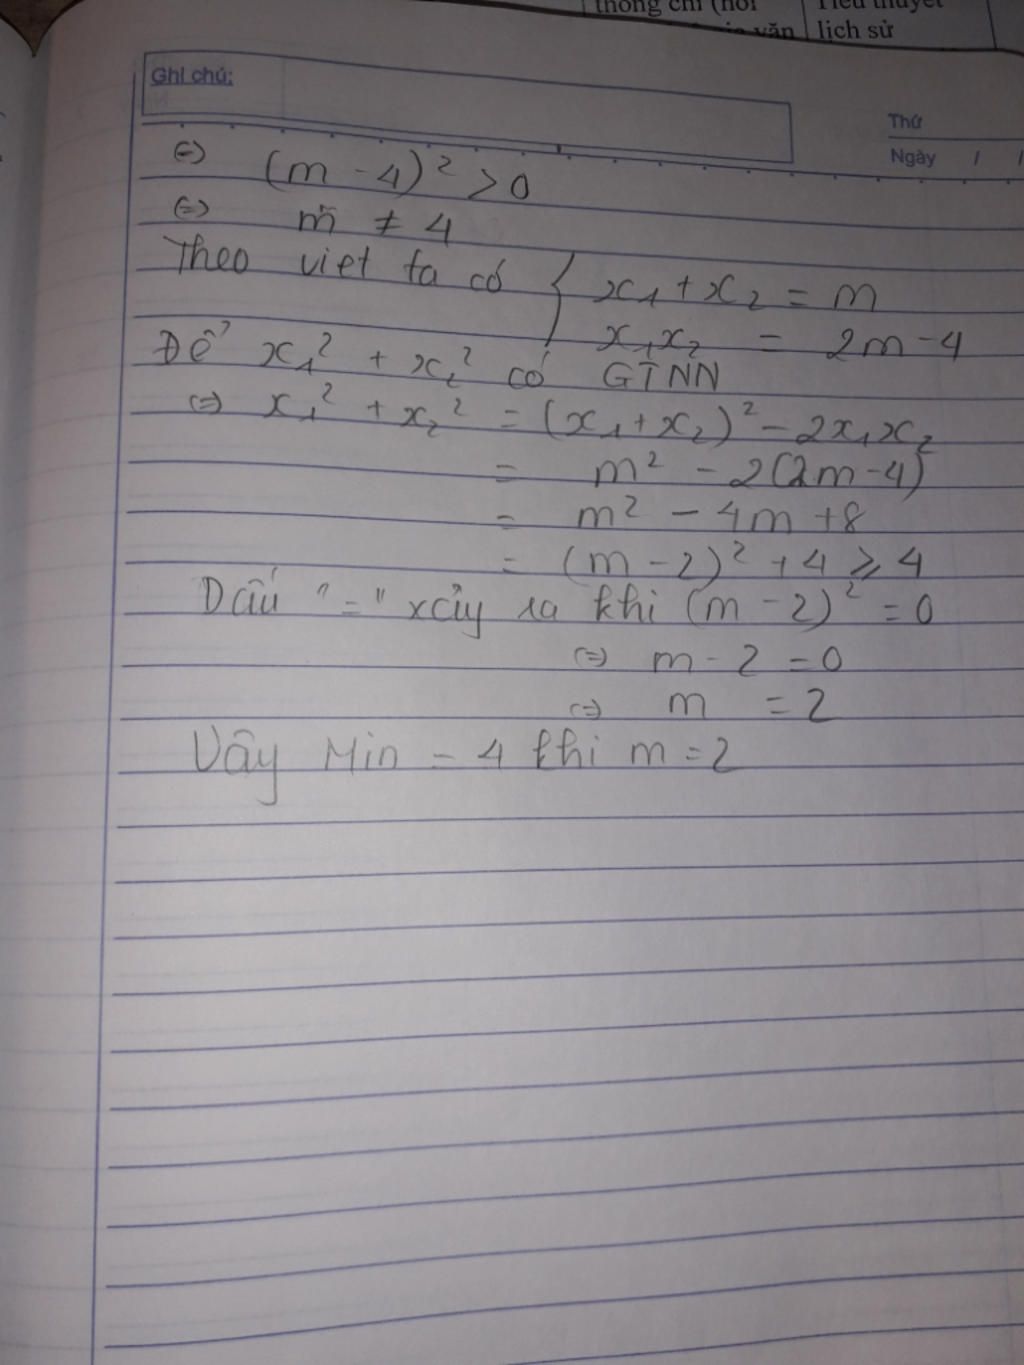 thông chí (hồi
Tiểu thuyết
văn
lịch sử
Ghi chú:
Thứ
Ngày / /
⇔ (m - 4)² > 0
⇔ m ≠ 4
Theo viet ta có { x₁ + x₂ = m
x₁x₂ = 2m - 4
Để x₁² + x₂² có GTNN
⇔ x₁² + x₂² = (x₁ + x₂)² - 2x₁x₂
= m² - 2(2m - 4)
= m² - 4m + 8
= (m - 2)² + 4 ⩾ 4
Dấu "=" xảy ra khi (m - 2)² = 0
⇔ m - 2 = 0
⇔ m = 2
Vậy Min = 4 khi m = 2